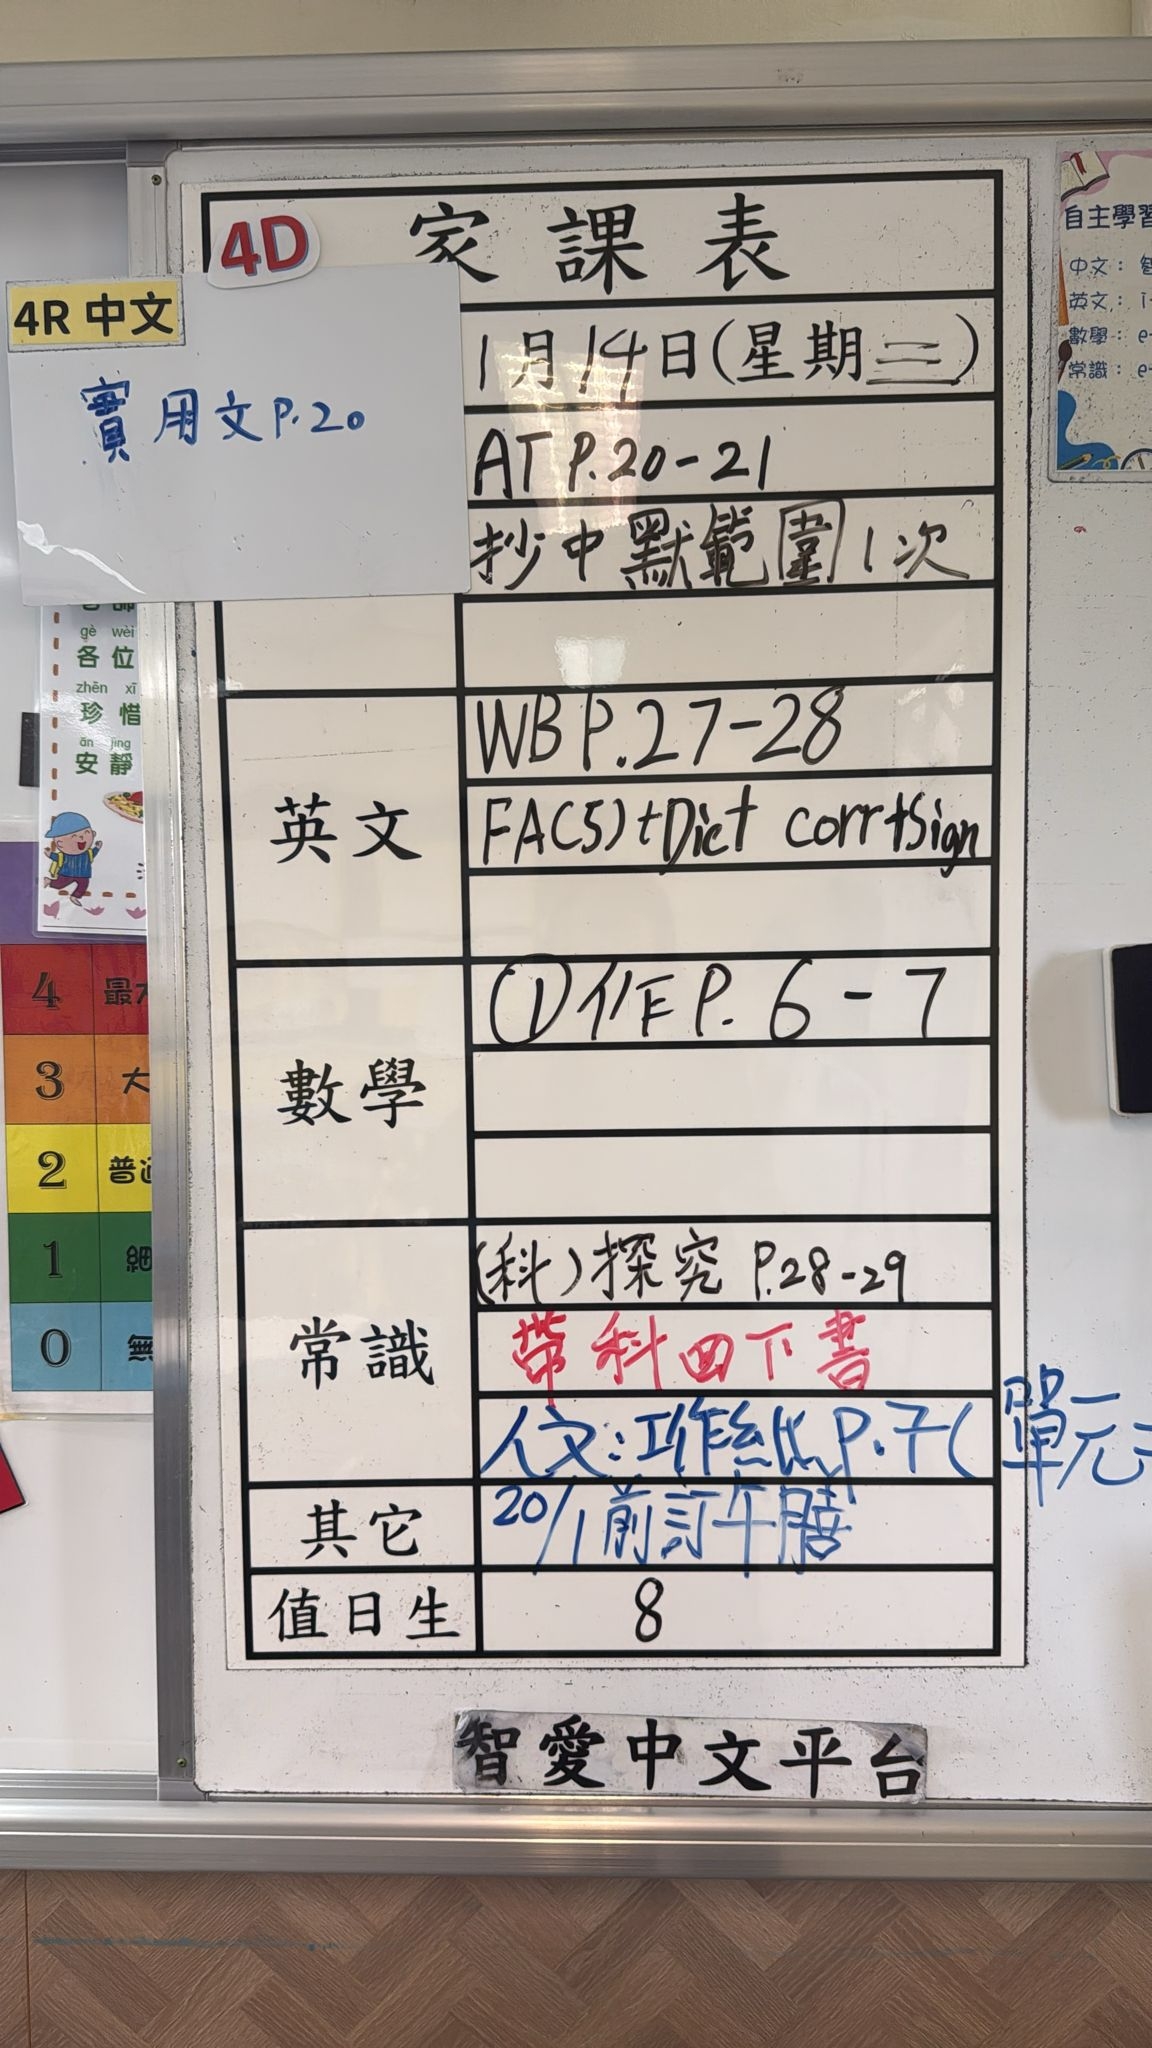 4D 家課表
4R 中文
實用文 P.20
1月14日(星期三)
AT P.20-21
抄中默範圍1次
英文
WB P.27-28
FA(5)+Dict corr+Sign
數學
①作 P. 6-7
常識
(科)探究 P.28-29
帶科四下書
人文:工作紙 P.7(單元
其它
20/1前訂午膳
值日生
8
智愛中文平台
自主學習
中文:
英文:
數學:
常識:
gè wèi
各位
zhēn xī
珍惜
ān jìng
安靜
4 最
3 大
2 普
1 細
0 無